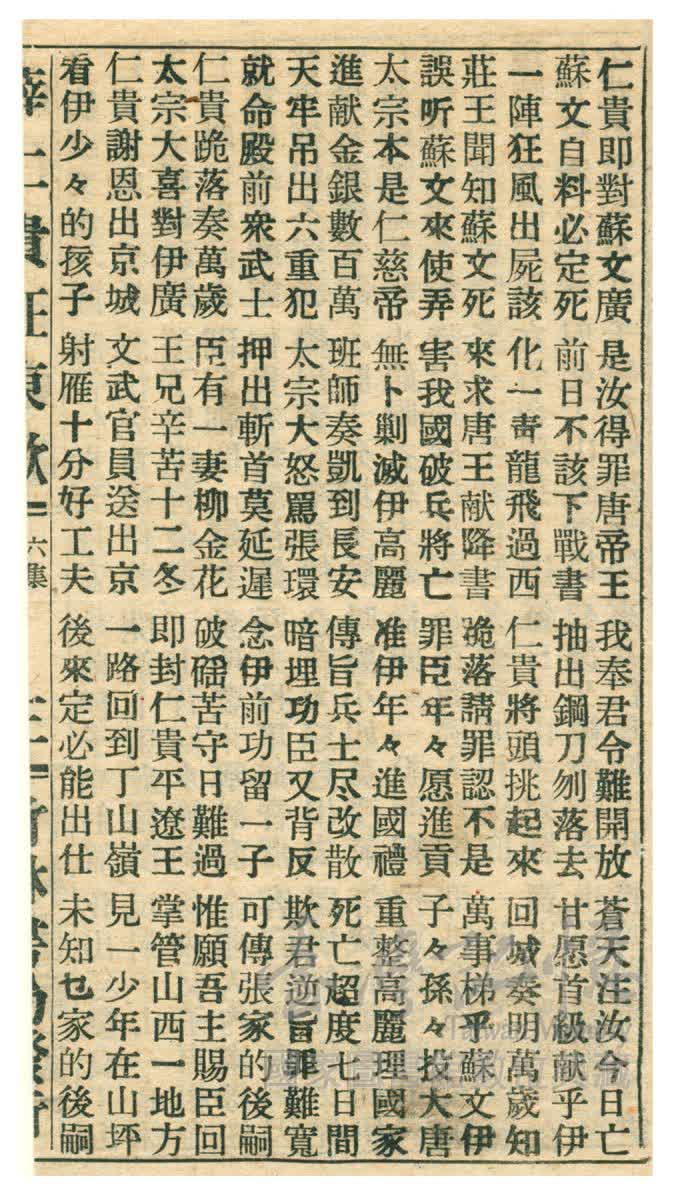 仁貴即對蘇文廣 是汝得罪唐帝王 我奉君令難開放 蒼天注汝今日亡
蘇文自料必定死 前日不該下戰書 抽出鋼刀刎落去 甘愿首級献乎伊
一陣狂風出屍該 化一青龍飛過西 仁貴將頭挑起來 回城奏明萬歲知
莊王聞知蘇文死 來求唐王献降書 跪落請罪認不是 萬事梯乎蘇文伊
誤听蘇文來使弄 害我國破兵將亡 罪臣年々愿進貢 子々孫々投大唐
太宗本是仁慈帝 無卜剿滅伊高麗 准伊年々進國禮 重整高麗理國家
進献金銀數百萬 班師奏凱到長安 傳旨兵士尽改散 死亡超度七日間
天牢吊出六重犯 太宗大怒罵張環 暗埋功臣又背反 欺君逆旨罪難寬
就命殿前衆武士 押出斬首莫延遲 念伊前功留一子 可傳張家的後嗣
仁貴跪落奏萬歲 臣有一妻柳金花 破磘苦守日難過 惟願吾主賜臣回
太宗大喜對伊廣 王兄辛苦十二冬 即封仁貴平遼王 掌管山西一地方
仁貴謝恩出京城 文武官員送出京 一路回到丁山嶺 見一少年在山坪
看伊少々的孩子 射雁十分好工夫 後來定必能出仕 未知乜家的後嗣
薛仁貴征東歌 六集